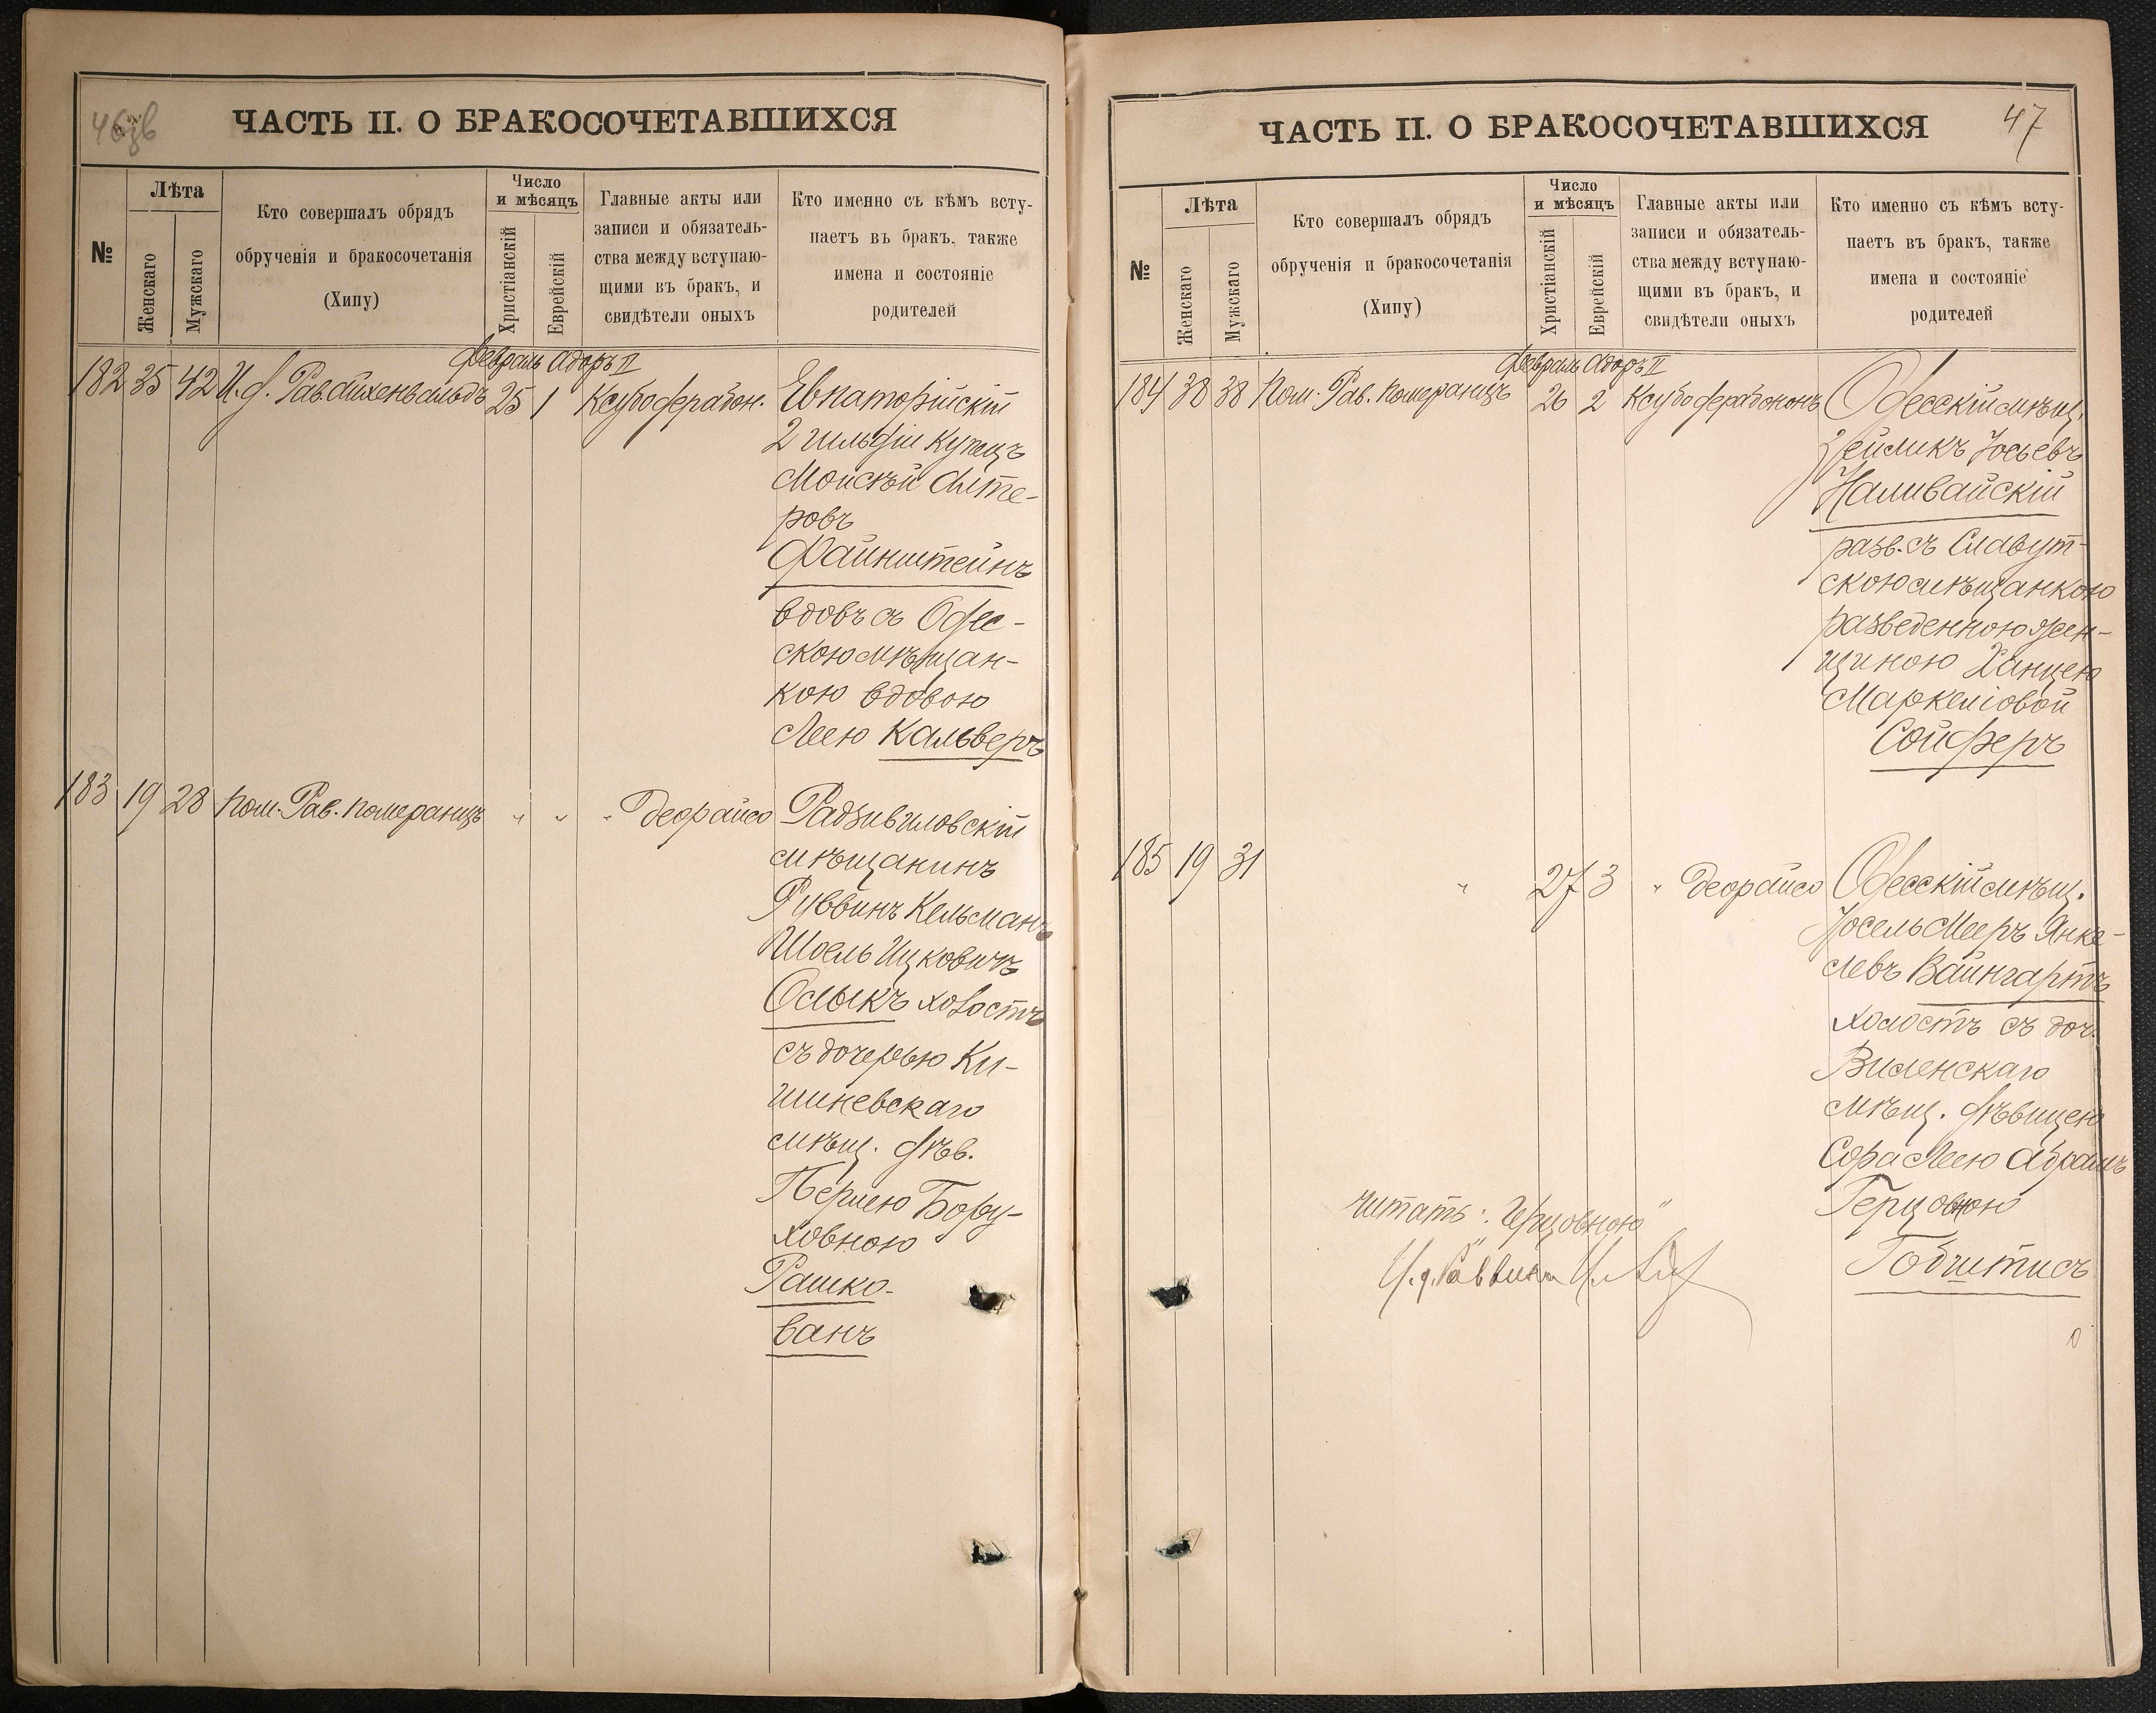 ЧАСТЬ II. О БРАКОСОЧЕТАВШИХСЯ
№
Лѣта
Женскаго
Мужскаго
Кто совершалъ обрядъ
обрученія и бракосочетанія
(Хипу)
Число
и мѣсяцъ
Христіанскій
Еврейскій
Главные акты или
записи и обязатель-
ства между вступаю-
щими въ бракъ, и
свидѣтели оныхъ
Кто именно съ кѣмъ всту-
паетъ въ бракъ, также
имена и состояніе
родителей
Февраль Адоръ II
182 35 42 И.д. Рав. Айхенвальдъ 25 1 Ксубо дерабон. Евпаторійскій
2 гильдіи купецъ
Моисѣй Алте-
ровъ
Файнштейнъ
вдовъ съ Одес-
скою мѣщан-
кою вдовою
Леею Кальверъ
183 19 28 Пом. Рав. Померанцъ " " " деорайсо Радзивиловскій
мѣщанинъ
Руввинъ Кельманъ
Шоель Ицковичъ
Олыкъ холостъ
съ дочерью Ки-
шиневскаго
мѣщ. дѣв.
Перлею Бору-
ховною
Рашко-
ванъ
ЧАСТЬ II. О БРАКОСОЧЕТАВШИХСЯ
47
№
Лѣта
Женскаго
Мужскаго
Кто совершалъ обрядъ
обрученія и бракосочетанія
(Хипу)
Число
и мѣсяцъ
Христіанскій
Еврейскій
Главные акты или
записи и обязатель-
ства между вступаю-
щими въ бракъ, и
свидѣтели оныхъ
Кто именно съ кѣмъ всту-
паетъ въ бракъ, также
имена и состояніе
родителей
Февраль Адоръ II
184 38 38 Пом. Рав. Померанцъ 26 2 Ксубо дерабононъ Одесскій мѣщ.
Зейликъ Іосьевъ
Наливайскій
разв. съ Славут-
скою мѣщанкою
разведенною жен-
щиною Ханцею
Маркеліовой
Сойферъ
185 19 31 " 27 3 " деорайсо Одесскій мѣщ.
Іосель Мееръ Янке-
левъ Вайнгартъ
холостъ съ доч.
Виленскаго
мѣщ. дѣвицею
Сора Леею Абрамъ
Герцовною
Гобштисъ
читать: "Герцовною"
И. д. Раввина